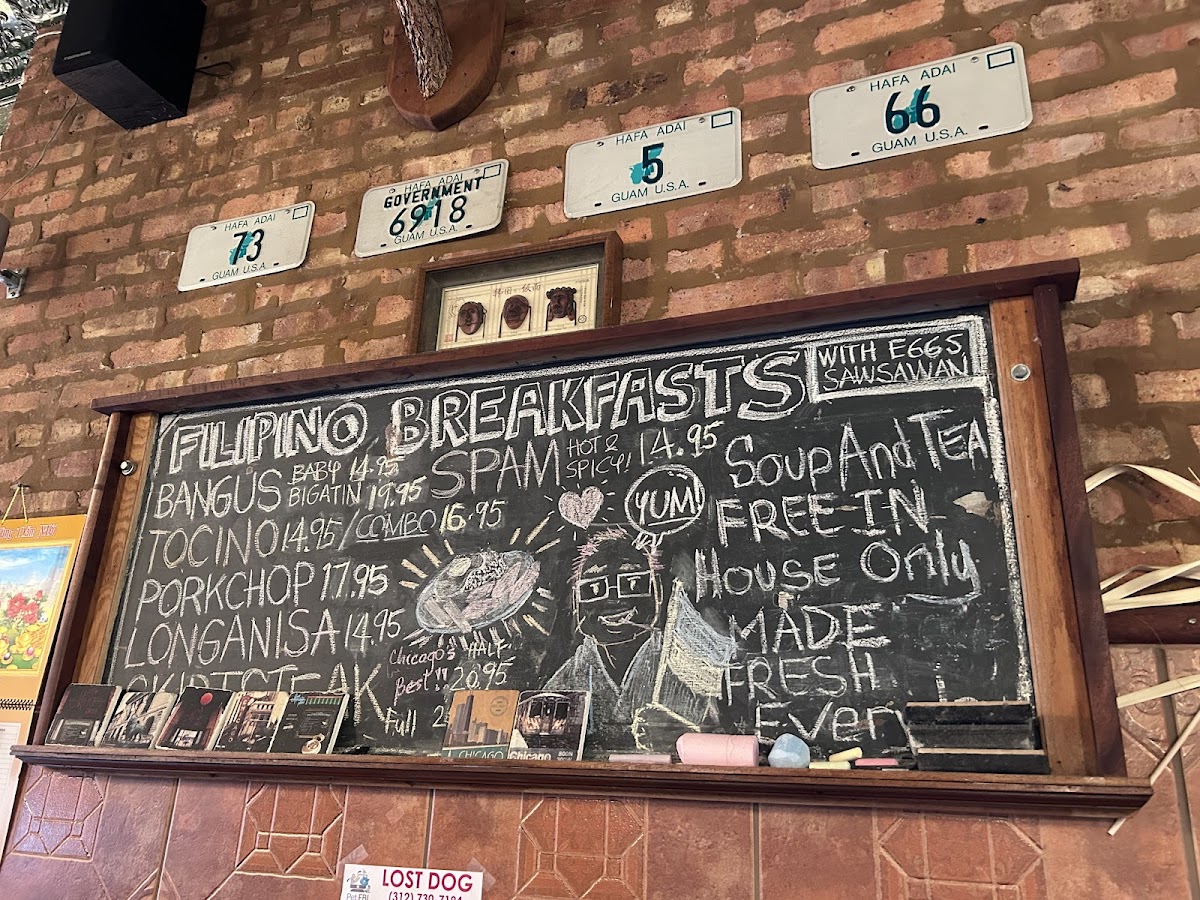 HAFA ADAI
66
GUAM U.S.A.
HAFA ADAI
5
GUAM U.S.A.
HAFA ADAI
GOVERNMENT
6918
GUAM U.S.A.
HAFA ADAI
73
GUAM U.S.A.
FILIPINO BREAKFASTS
WITH EGGS
SAWSAWAN
BANGUS BABY 14.95
BIGATIN 19.95
SPAM HOT &
SPICY! 14.95
TOCINO 14.95/COMBO 16.95
PORKCHOP 17.95
LONGANISA 14.95
SKIRTSTEAK
Chicago's
Best!!
HALF
20.95
Full 2
YUM!
Soup And TEA
FREE IN
House Only
MADE
FRESH
Every
CHICAGO
Chicago
LOST DOG
(312) 730-7194
Pet FBI